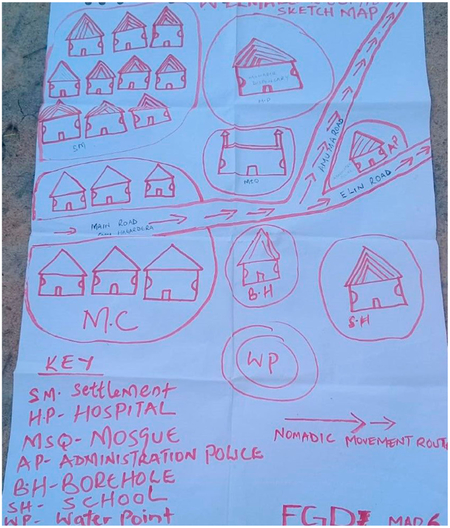 SKETCH MAP
HP
SM
MSQ
HAUMA ROAD
AP
ELIN ROAD
MAIN ROAD
B.H
S.H
M.C
WP
KEY
SM. Settlement
HP- HOSPITAL
MSQ- MOSQUE
AP- ADMINISTRATION POLICE
BH- BOREHOLE
SH- SCHOOL
WP- Water Point
NOMADIC MOVEMENT ROUT
FGD7 MAP 6